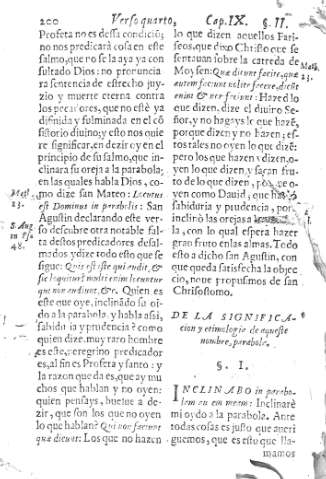 200 Verso quarto, Cap. IX. §. II.
Profeta no es dessa condiciõ,
no nos predicarà cosa en este
salmo, que no se la aya ya con
sultado Dios: no pronuncia
rà sentencia de estrecho juy-
zio y muerte eterna contra
los pecadores, que no estè ya
difinida y fulminada en el cõ
sistorio diuino; y esto nos quie
re significar, en dezir oy en el
principio de su salmo, que in-
clinara su oreja a la parabola;
en las quales habla Dios, co-
mo dize san Mateo: Locutus
est Dominus in parabolis: San
Agustin declarando este ver-
so descubre otra notable fal-
ta destos predicadores desal-
mados y dize todo esto que se
sigue: Quis est iste qui audit, &
sic loquitur? multi enim loquuntur
que non audiunt, &c. Quien es
este que oye, inclinãdo su oi-
do a la parabola, y habla assi,
sabiduria y prudencia? como
quien dize, muy raro hombre
es esse, peregrino predicador
es, al fin es Profeta y santo: y
la razon que da es, que ay mu
chos que hablan y no oyen:
quien pensays, buelue a de-
zir, que son los que no oyen
lo que hablan? Qui non faciunt
quæ dicunt: Los que no hazen
Mat.
23.
S. Aug.
48.
lo que dizen aquellos Fari-
seos, que dixo Christo que se
sentauan sobre la catreda de
Moysen: Quæ dicunt facite, quæ
autem faciunt nolite facere, dicunt
enim & non faciunt: Hazed lo
que dizen, dize el diuiro Se-
ñor, y no hagays lo que hazẽ,
porque dizen y no hazen; es-
tos tales no oyen lo que dizẽ:
pero los que hazen y dizen, o-
yen lo que dizen, y sacan fru-
to de lo que dizen, porque o-
yen como Dauid, que habla
sabiduria y prudencia, por
inclinò las orejas a
ra, con lo qual espera hazer
gran fruto en las almas. Todo
esto a dicho san Agustin, con
que queda satisfecha la obje-
cio, que propusimos de san
Chrisostomo.
Mat.
23.
DE LA SIGNIFICA-
cion y etimologia de aqueste
nombre, parabola.
§. I.
INCLINABO in parabo-
lam au em meam: Inclinarè
mi oydo a la parabola. Ante
todas cosas es justo que aueri
guemos, que es esto que lla-
mamos